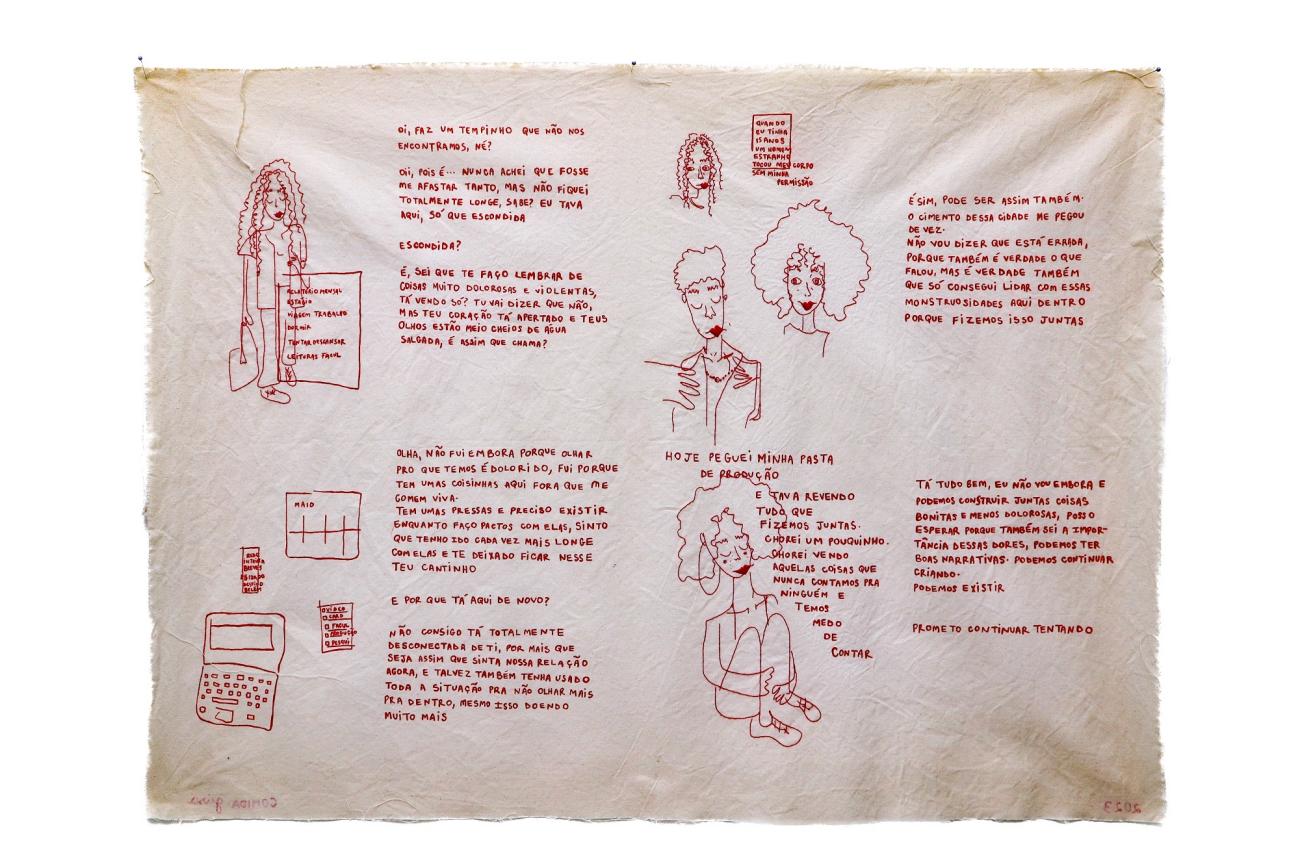 OI, FAZ UM TEMPINHO QUE NÃO NOS
ENCONTRAMOS, NÉ?
OII, POIS É... NUNCA ACHEI QUE FOSSE
ME AFASTAR TANTO, MAS NÃO FIQUEI
TOTALMENTE LONGE, SABE? EU TAVA
AQUI, SÓ QUE ESCONDIDA
ESCONDIDA?
É, SEI QUE TE FAÇO LEMBRAR DE
COISAS MUITO DOLOROSAS E VIOLENTAS,
TÁ VENDO SÓ? TU VAI DIZER QUE NÃO,
MAS TEU CORAÇÃO TÁ APERTADO E TEUS
OLHOS ESTÃO MEIO CHEIOS DE ÁGUA
SALGADA, É ASSIM QUE CHAMA?
RELATÓRIO MENSAL
ESTÁGIO
VIAGEM TRABALHO
DORMIR
TENTAR DESCANSAR
LEITURAS FACUL
OLHA, NÃO FUI EMBORA PORQUE OLHAR
PRO QUE TEMOS É DOLORIDO, FUI PORQUE
TEM UMAS COISINHAS AQUI FORA QUE ME
COMEM VIVA.
TEM UMAS PRESSAS E PRECISO EXISTIR
ENQUANTO FAÇO PACTOS COM ELAS, SINTO
QUE TENHO IDO CADA VEZ MAIS LONGE
COM ELAS E TE DEIXADO FICAR NESSE
TEU CANTINHO
E POR QUE TÁ AQUI DE NOVO?
NÃO CONSIGO TÁ TOTALMENTE
DESCONECTADA DE TI, POR MAIS QUE
SEJA ASSIM QUE SINTA NOSSA RELAÇÃO
AGORA, E TALVEZ TAMBÉM TENHA USADO
TODA A SITUAÇÃO PRA NÃO OLHAR MAIS
PRA DENTRO, MESMO ISSO DOENDO
MUITO MAIS
MAIO
VÍDEO
CARD
FACUL
PRODUÇÃO
PESQUI
QUANDO
EU TINHA
15 ANOS
UM HOMEM
ESTRANHO
TOCOU MEU CORPO
SEM MINHA
PERMISSÃO
É SIM, PODE SER ASSIM TAMBÉM.
O CIMENTO DESSA CIDADE ME PEGOU
DE VEZ.
NÃO VOU DIZER QUE ESTÁ ERRADA,
PORQUE TAMBÉM É VERDADE O QUE
FALOU, MAS É VERDADE TAMBÉM
QUE SÓ CONSEGUI LIDAR COM ESSAS
MONSTRUOSIDADES AQUI DENTRO
PORQUE FIZEMOS ISSO JUNTAS
HOJE PEGUEI MINHA PASTA
DE PRODUÇÃO
E TAVA REVENDO
TUDO QUE
FIZEMOS JUNTAS.
CHOREI UM POUQUINHO.
CHOREI VENDO
AQUELAS COISAS QUE
NUNCA CONTAMOS PRA
NINGUÉM E
TEMOS
MEDO
DE
CONTAR
TÁ TUDO BEM, EU NÃO VOU EMBORA E
PODEMOS CONSTRUIR JUNTAS COISAS
BONITAS E MENOS DOLOROSAS, POSSO
ESPERAR PORQUE TAMBÉM SEI A IMPOR-
TÂNCIA DESSAS DORES, PODEMOS TER
BOAS NARRATIVAS. PODEMOS CONTINUAR
CRIANDO.
PODEMOS EXISTIR
PROMETO CONTINUAR TENTANDO
COMIDA
2023